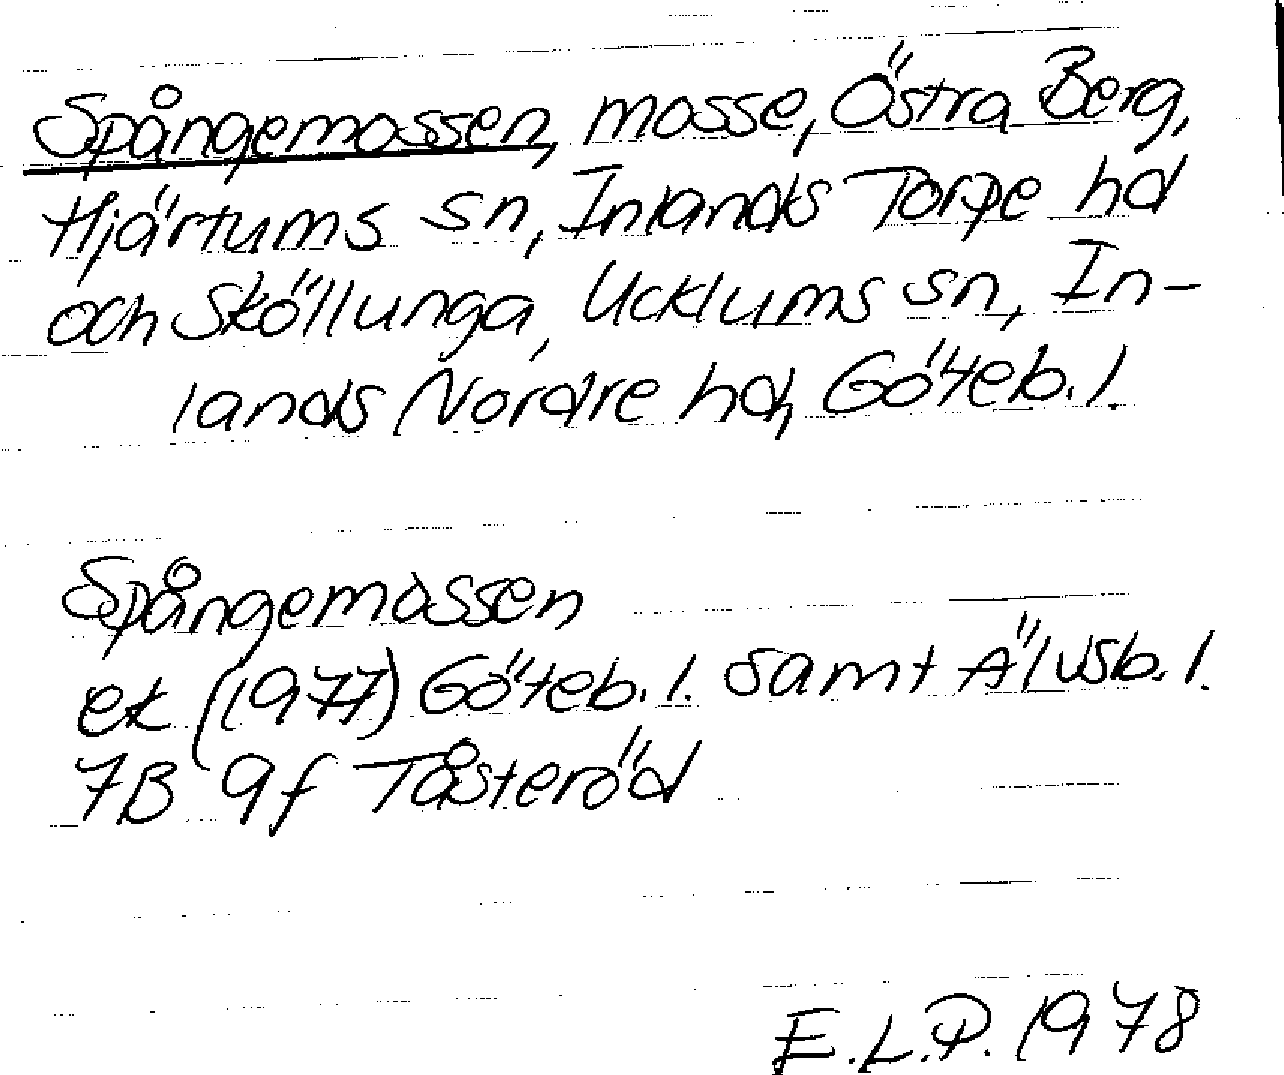 Spångemossen, mosse, Östra Berg,
Hjärtums sn, Inlands Torpe hd
och Sköllunga, Ucklums sn, In-
lands Nordre hd, Göteb. l.
Spångemossen
ek (1977) Göteb. l. samt Älvsb. l.
7B 9f Tåsteröd
E.L.P. 1978